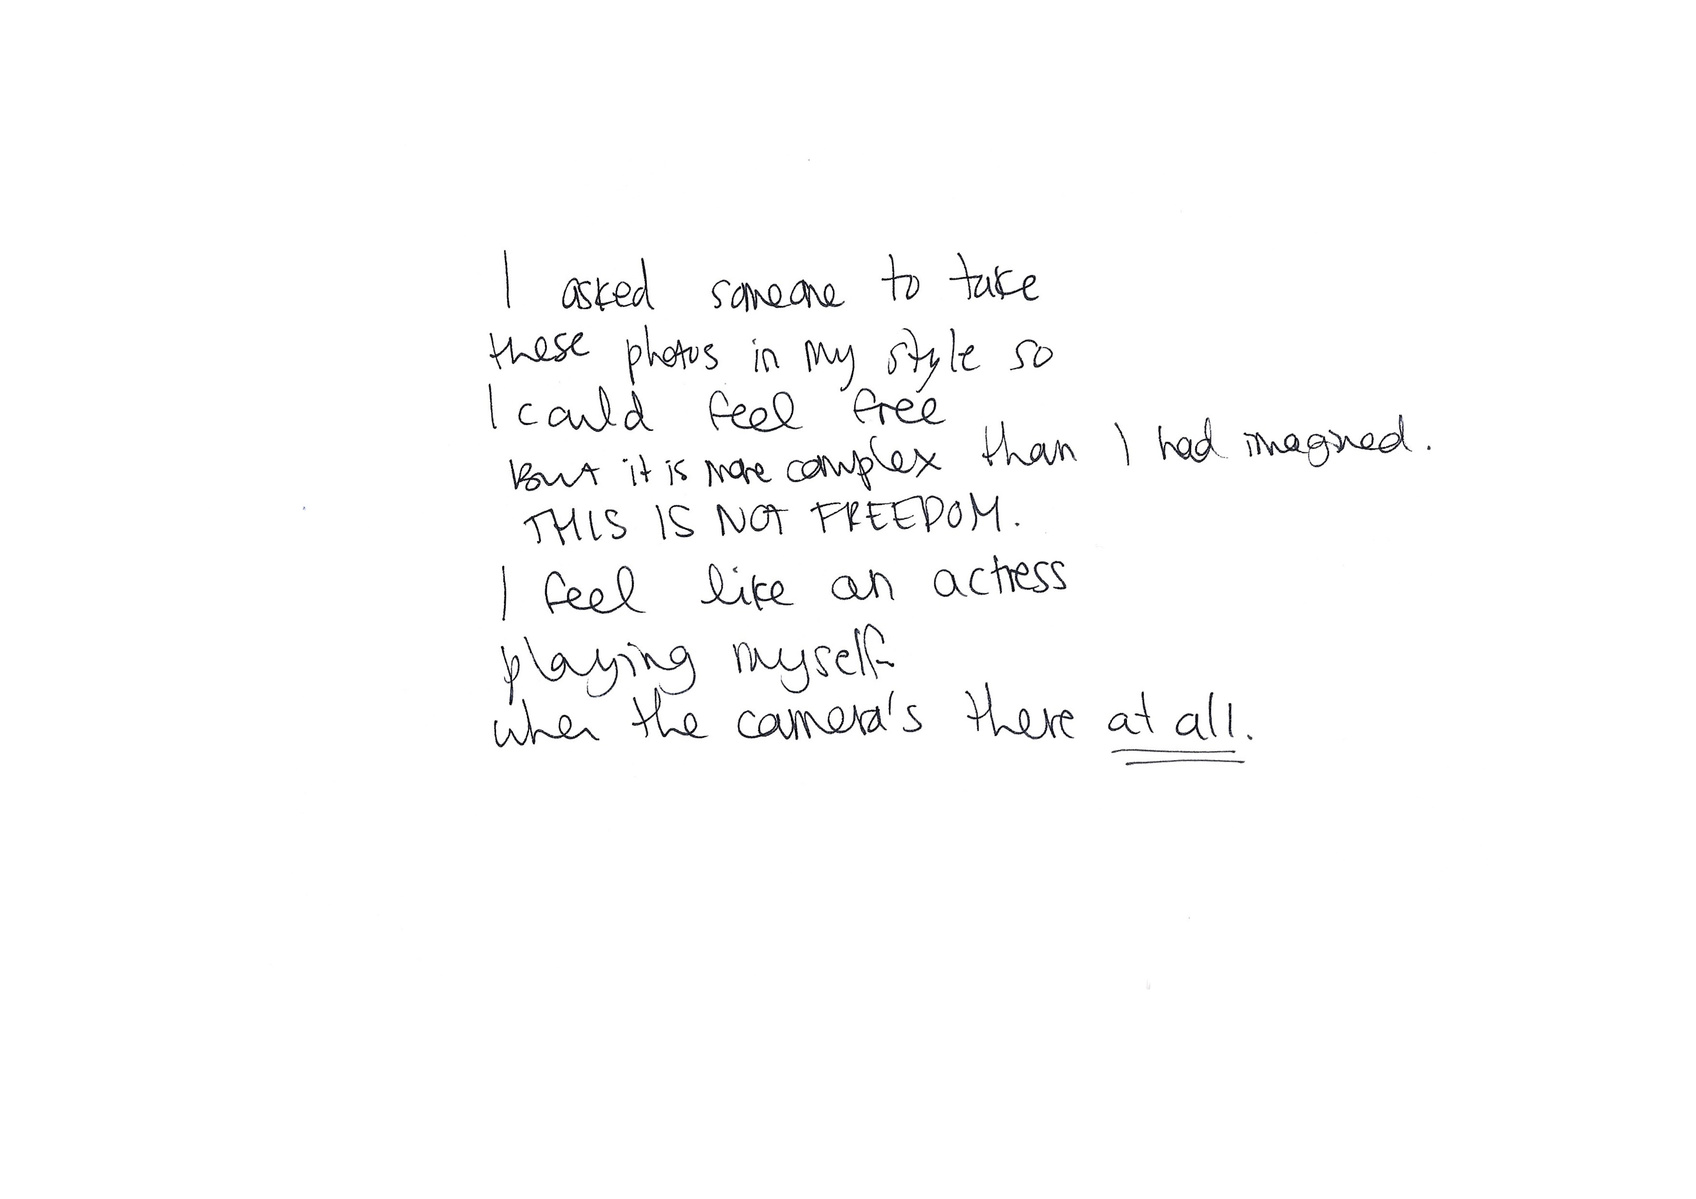 I asked someone to take
these photos in my style so
I could feel free
But it is more complex than I had imagined.
THIS IS NOT FREEDOM.
I feel like an actress
playing myself
when the camera's there at all.